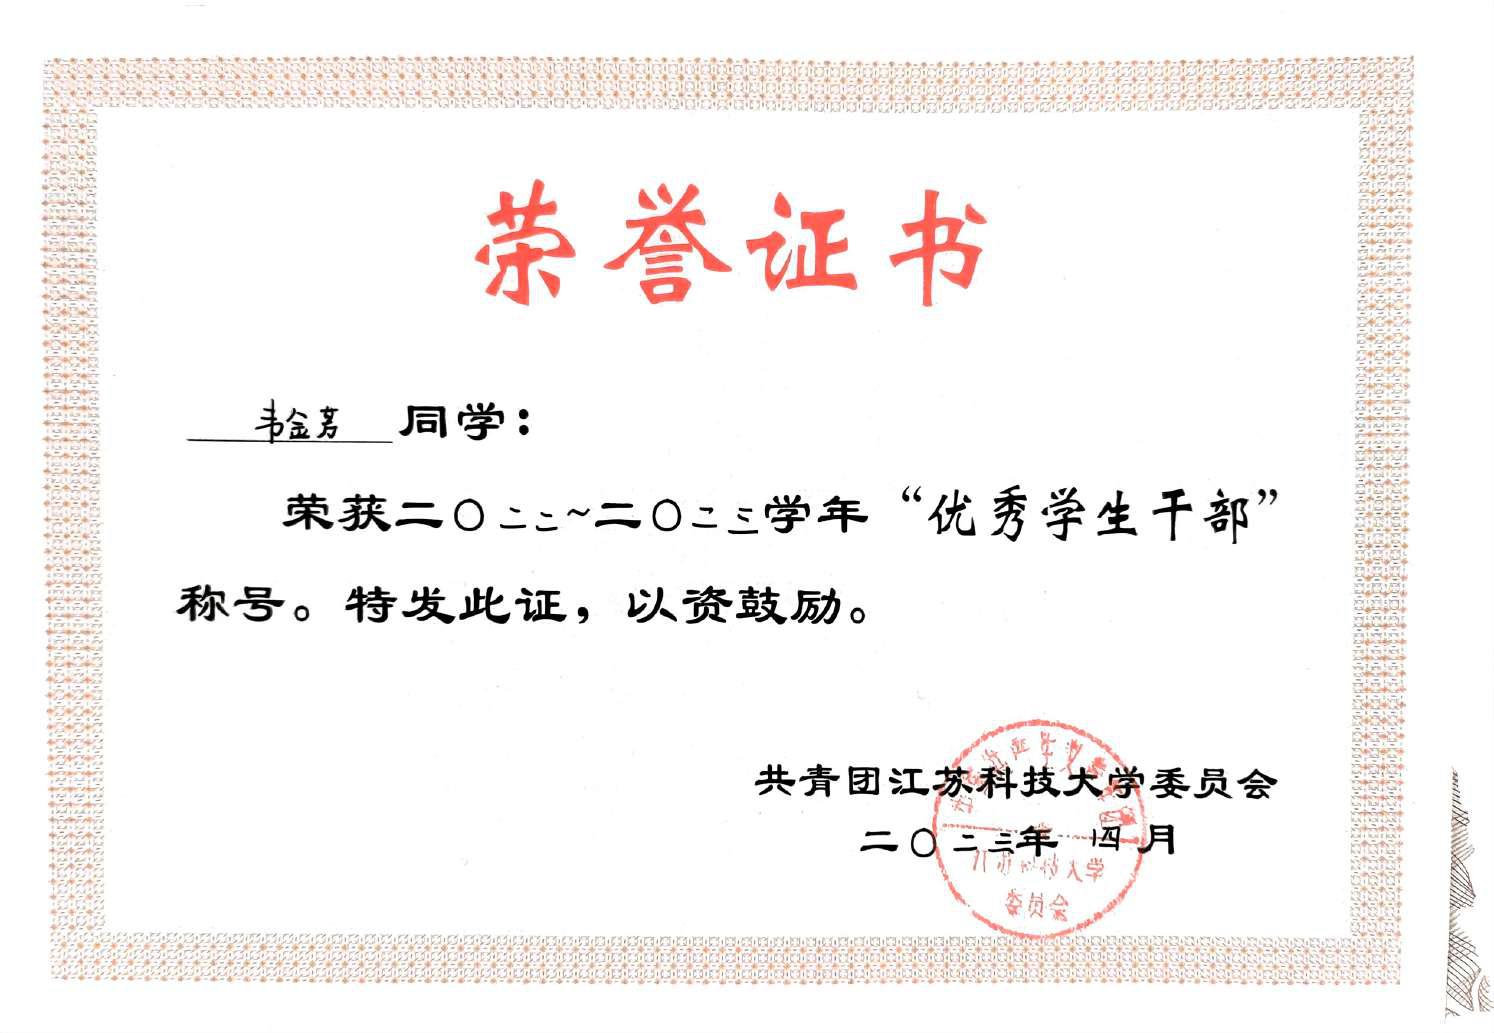 荣誉证书
韦金芳 同学：
荣获二〇二二~二〇二三学年“优秀学生干部”
称号。特发此证，以资鼓励。
共青团江苏科技大学委员会
二〇二三年 四月
江苏科技大学
委员会